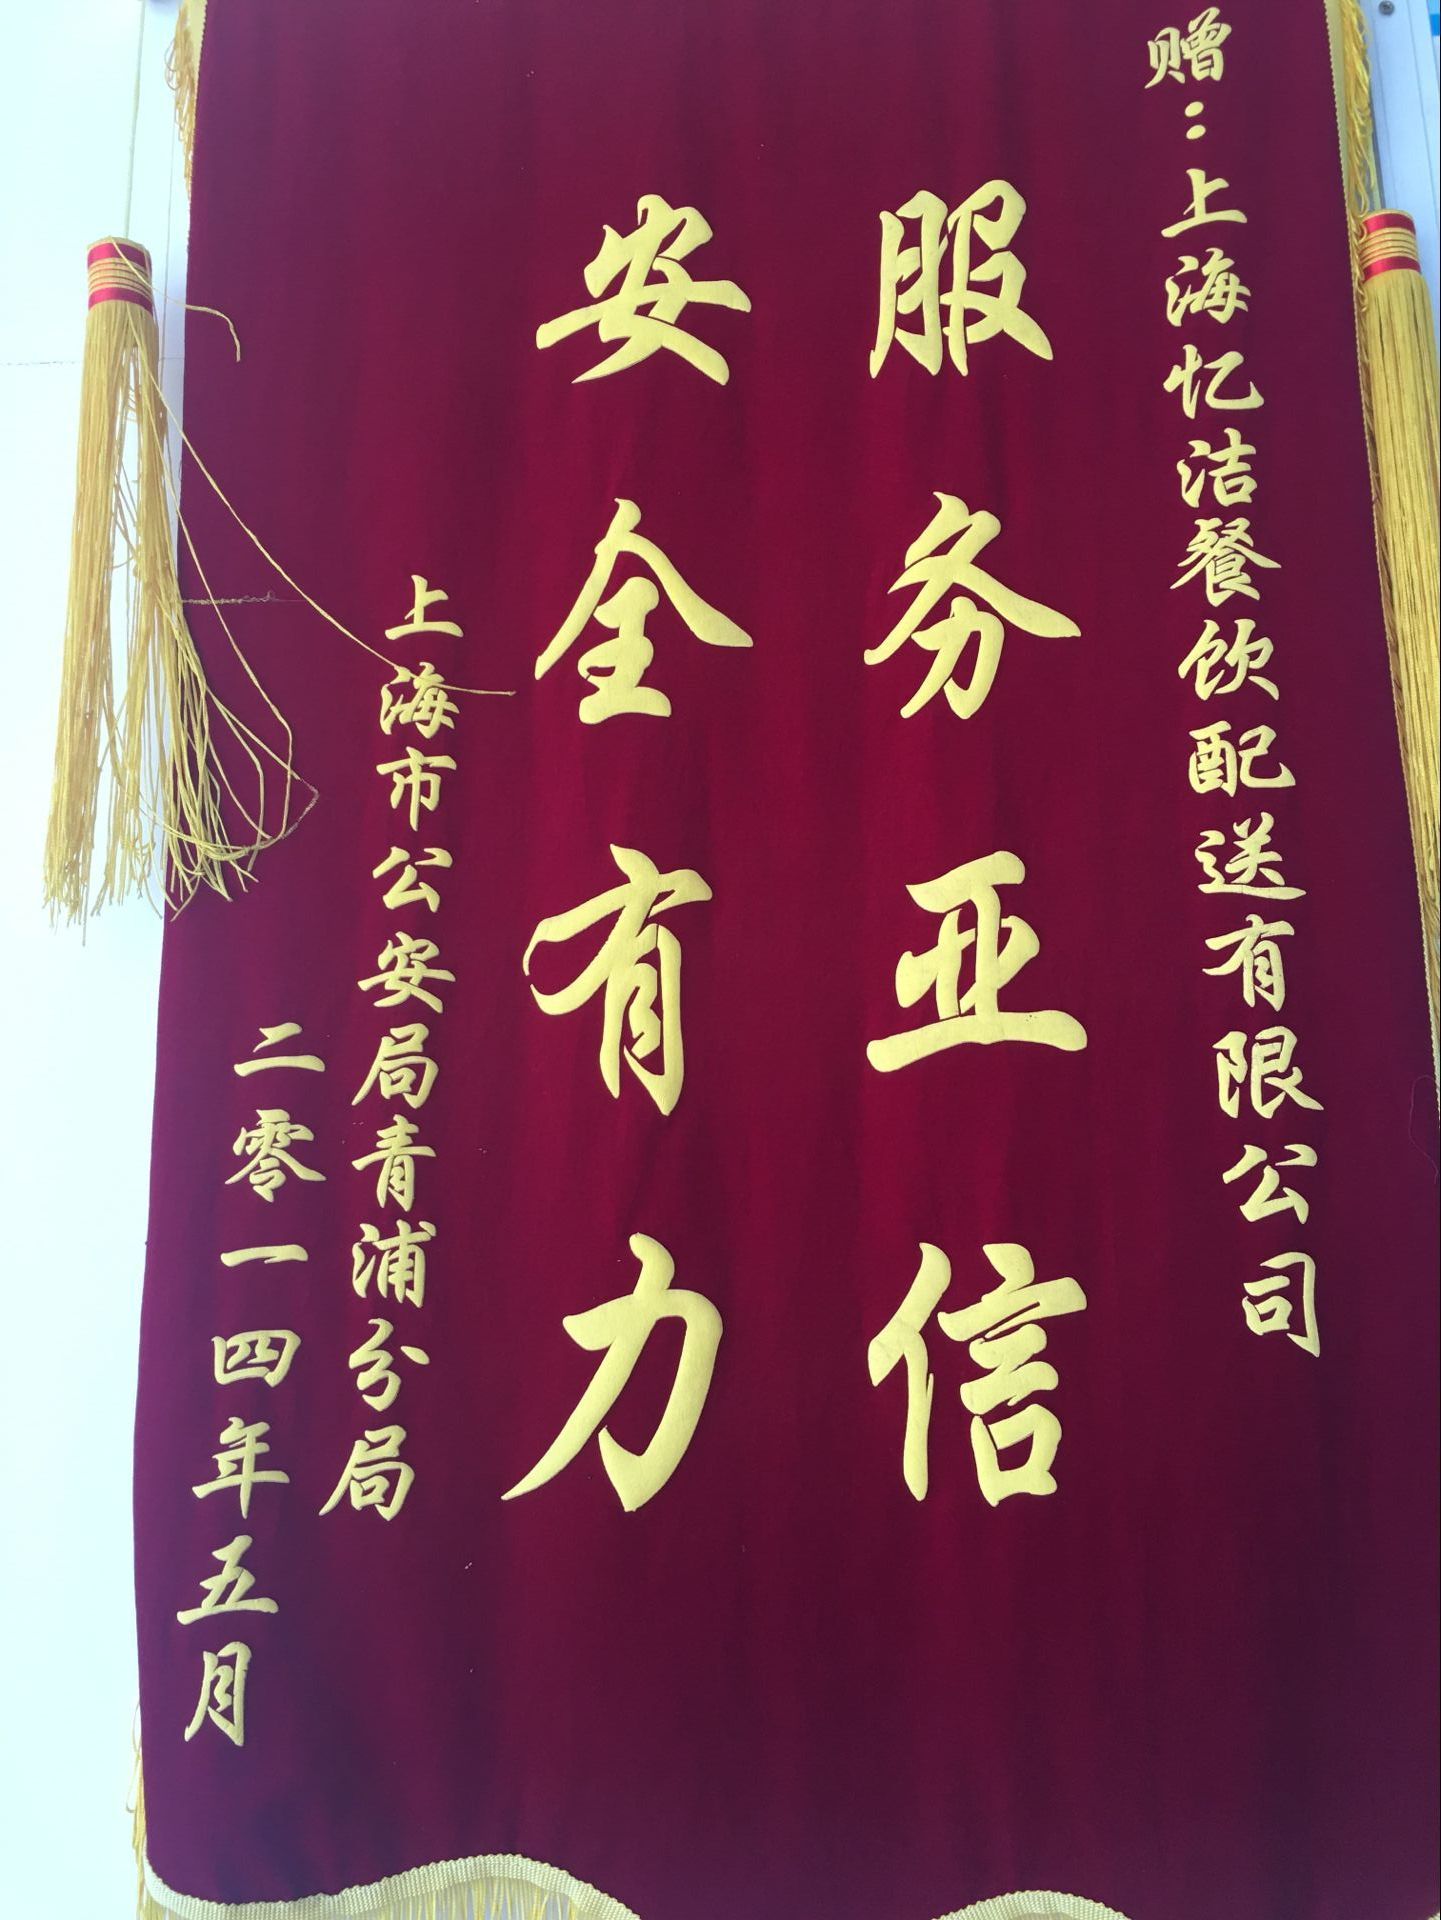 赠:上海忆洁餐饮配送有限公司
服务亚信
安全有力
上海市公安局青浦分局
二零一四年五月